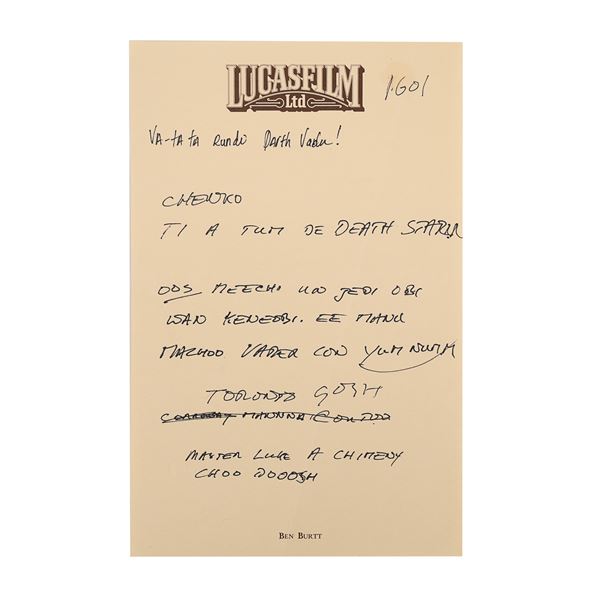 LUCASFILM
Ltd
1.G01
VA-TA TA Rundi Darth Vader!
CHEWKO
TI A TUM DE DEATH STARR
DOS MEECHI UN JEDI OBI
WAN KENEOBI. EE MANU
MACHOO VADER CON YUM NUM
TORONTO GOSH
MANNA
MASTER LUKE A CHIMENY
CHOO DOOOSH
BEN BURTT